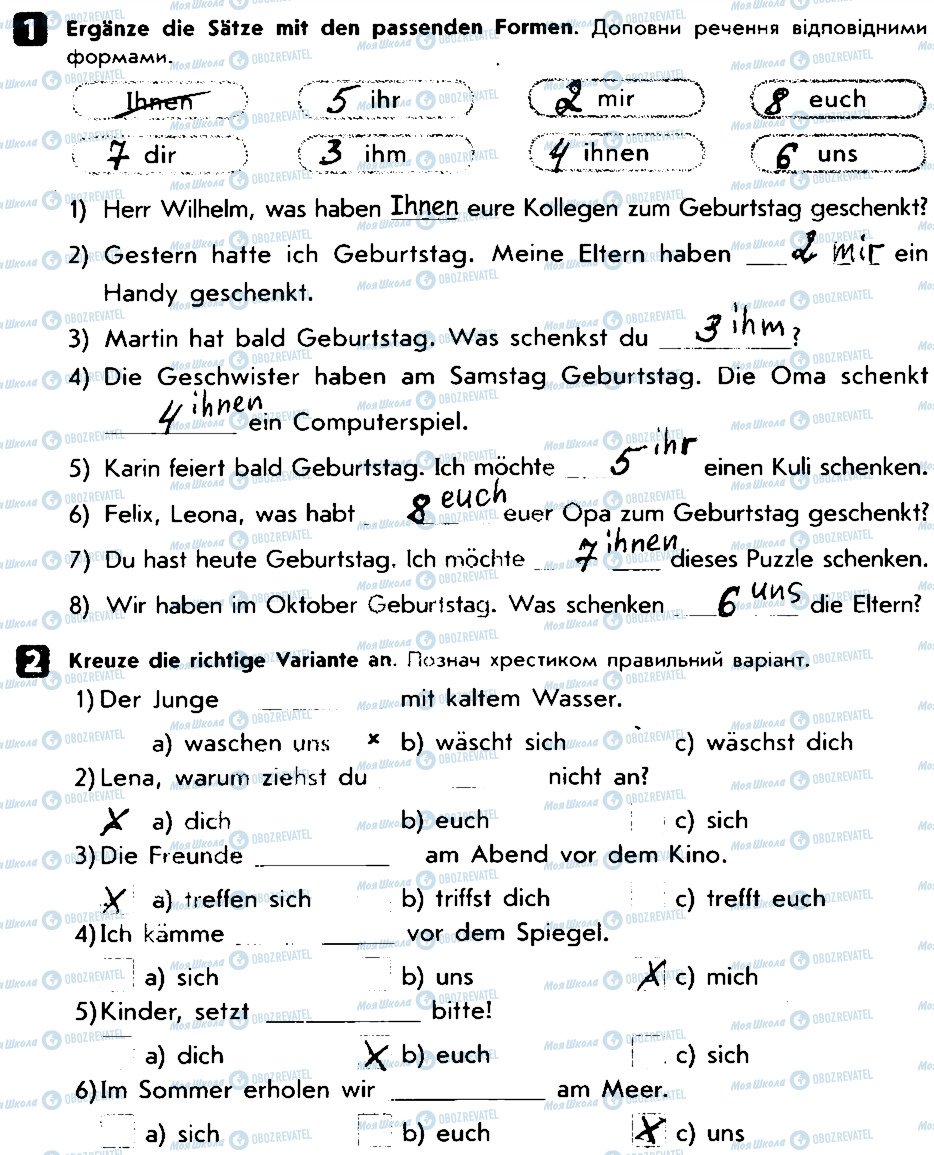 1 Ergänze die Sätze mit den passenden Formen. Доповни речення відповідними
формами.
Ihnen 5 ihr 2 mir 8 euch
7 dir 3 ihm 4 ihnen 6 uns
1) Herr Wilhelm, was haben Ihnen eure Kollegen zum Geburtstag geschenkt?
2) Gestern hatte ich Geburtstag. Meine Eltern haben ___ 2 mir ein
Handy geschenkt.
3) Martin hat bald Geburtstag. Was schenkst du 3 ihm ?
4) Die Geschwister haben am Samstag Geburtstag. Die Oma schenkt
4 ihnen ein Computerspiel.
5) Karin feiert bald Geburtstag. Ich möchte 5 ihr einen Kuli schenken.
6) Felix, Leona, was habt 8 euch euer Opa zum Geburtstag geschenkt?
7) Du hast heute Geburtstag. Ich möchte 7 ihnen dieses Puzzle schenken.
8) Wir haben im Oktober Geburtstag. Was schenken 6 uns die Eltern?
2 Kreuze die richtige Variante an. Познач хрестиком правильний варіант.
1) Der Junge ___ mit kaltem Wasser.
a) waschen uns x b) wäscht sich c) wäschst dich
2) Lena, warum ziehst du ___ nicht an?
X a) dich b) euch c) sich
3) Die Freunde ___ am Abend vor dem Kino.
X a) treffen sich b) triffst dich c) trefft euch
4) Ich kämme ___ vor dem Spiegel.
a) sich b) uns X c) mich
5) Kinder, setzt ___ bitte!
a) dich X b) euch c) sich
6) Im Sommer erholen wir ___ am Meer.
a) sich b) euch X c) uns